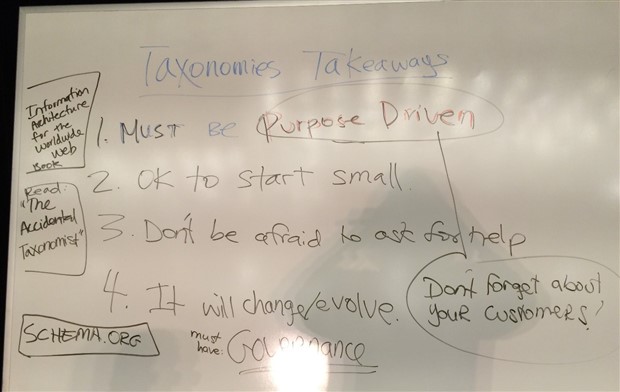 Taxonomies Takeaways
Information
Architecture
for the
Worldwide
Web
Book
1. Must Be Purpose Driven
2. OK to start small.
Read:
"The
Accidental
Taxonomist"
3. Don't be afraid to ask for help
4. It will change/evolve.
Don't forget about
your customers!
SCHEMA.ORG
must
have: Governance